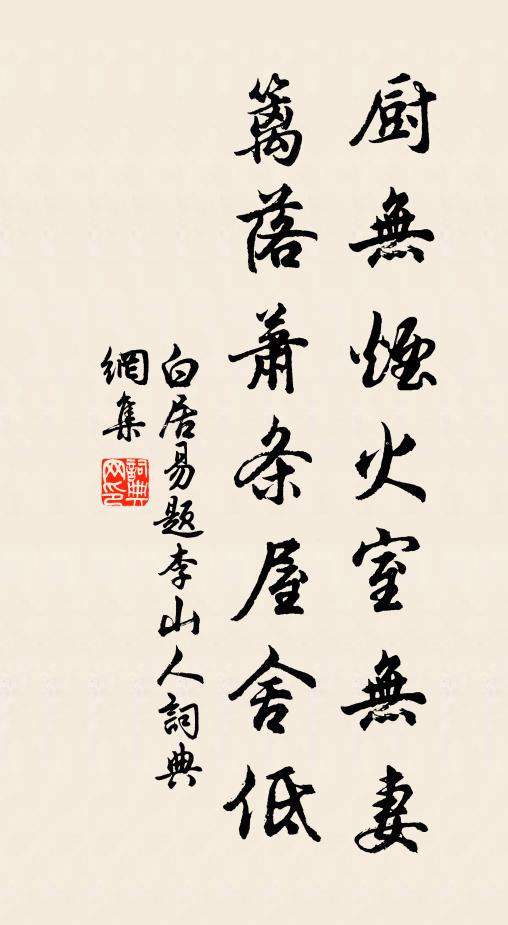 厨無煙火室無妻
籬落蕭条屋舍低
白居易題李山人詞典
網集
詞典
网印